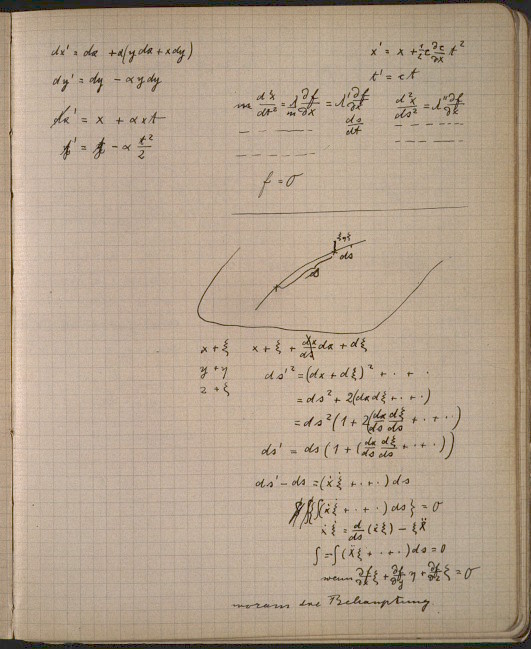 dx' = dx + α(y dx + x dy)
dy' = dy − α y dy
x' = x + α x t
t' = t − α t²/2
x' = x + ½ c ∂c/∂x t²
t' = ct
m d²x/dt² = λ/m ∂f/∂x = λ' ∂f/∂x
ds/dt
d²x/ds² = λ'' ∂f/∂x
f = 0
ξηζ
ds
x + ξ x + ξ + dx/ds dx + dξ
y + η
z + ζ
ds'² = (dx + dξ)² + · + ·
= ds² + 2(dx dξ + · + ·)
= ds² (1 + 2(dx/ds dξ/ds + · + ·))
ds' = ds (1 + (dx/ds dξ/ds + · + ·))
ds' − ds = (ẋ ξ̇ + · + ·) ds
∫{(ẋ ξ̇ + · + ·) ds} = 0
ẋ ξ̇ = d/ds (ẋ ξ) − ξ ẍ
∫ = ∫(ẍ ξ + · + ·) ds = 0
wenn ∂f/∂x ξ + ∂f/∂y η + ∂f/∂z ζ = 0
woraus die Behauptung.